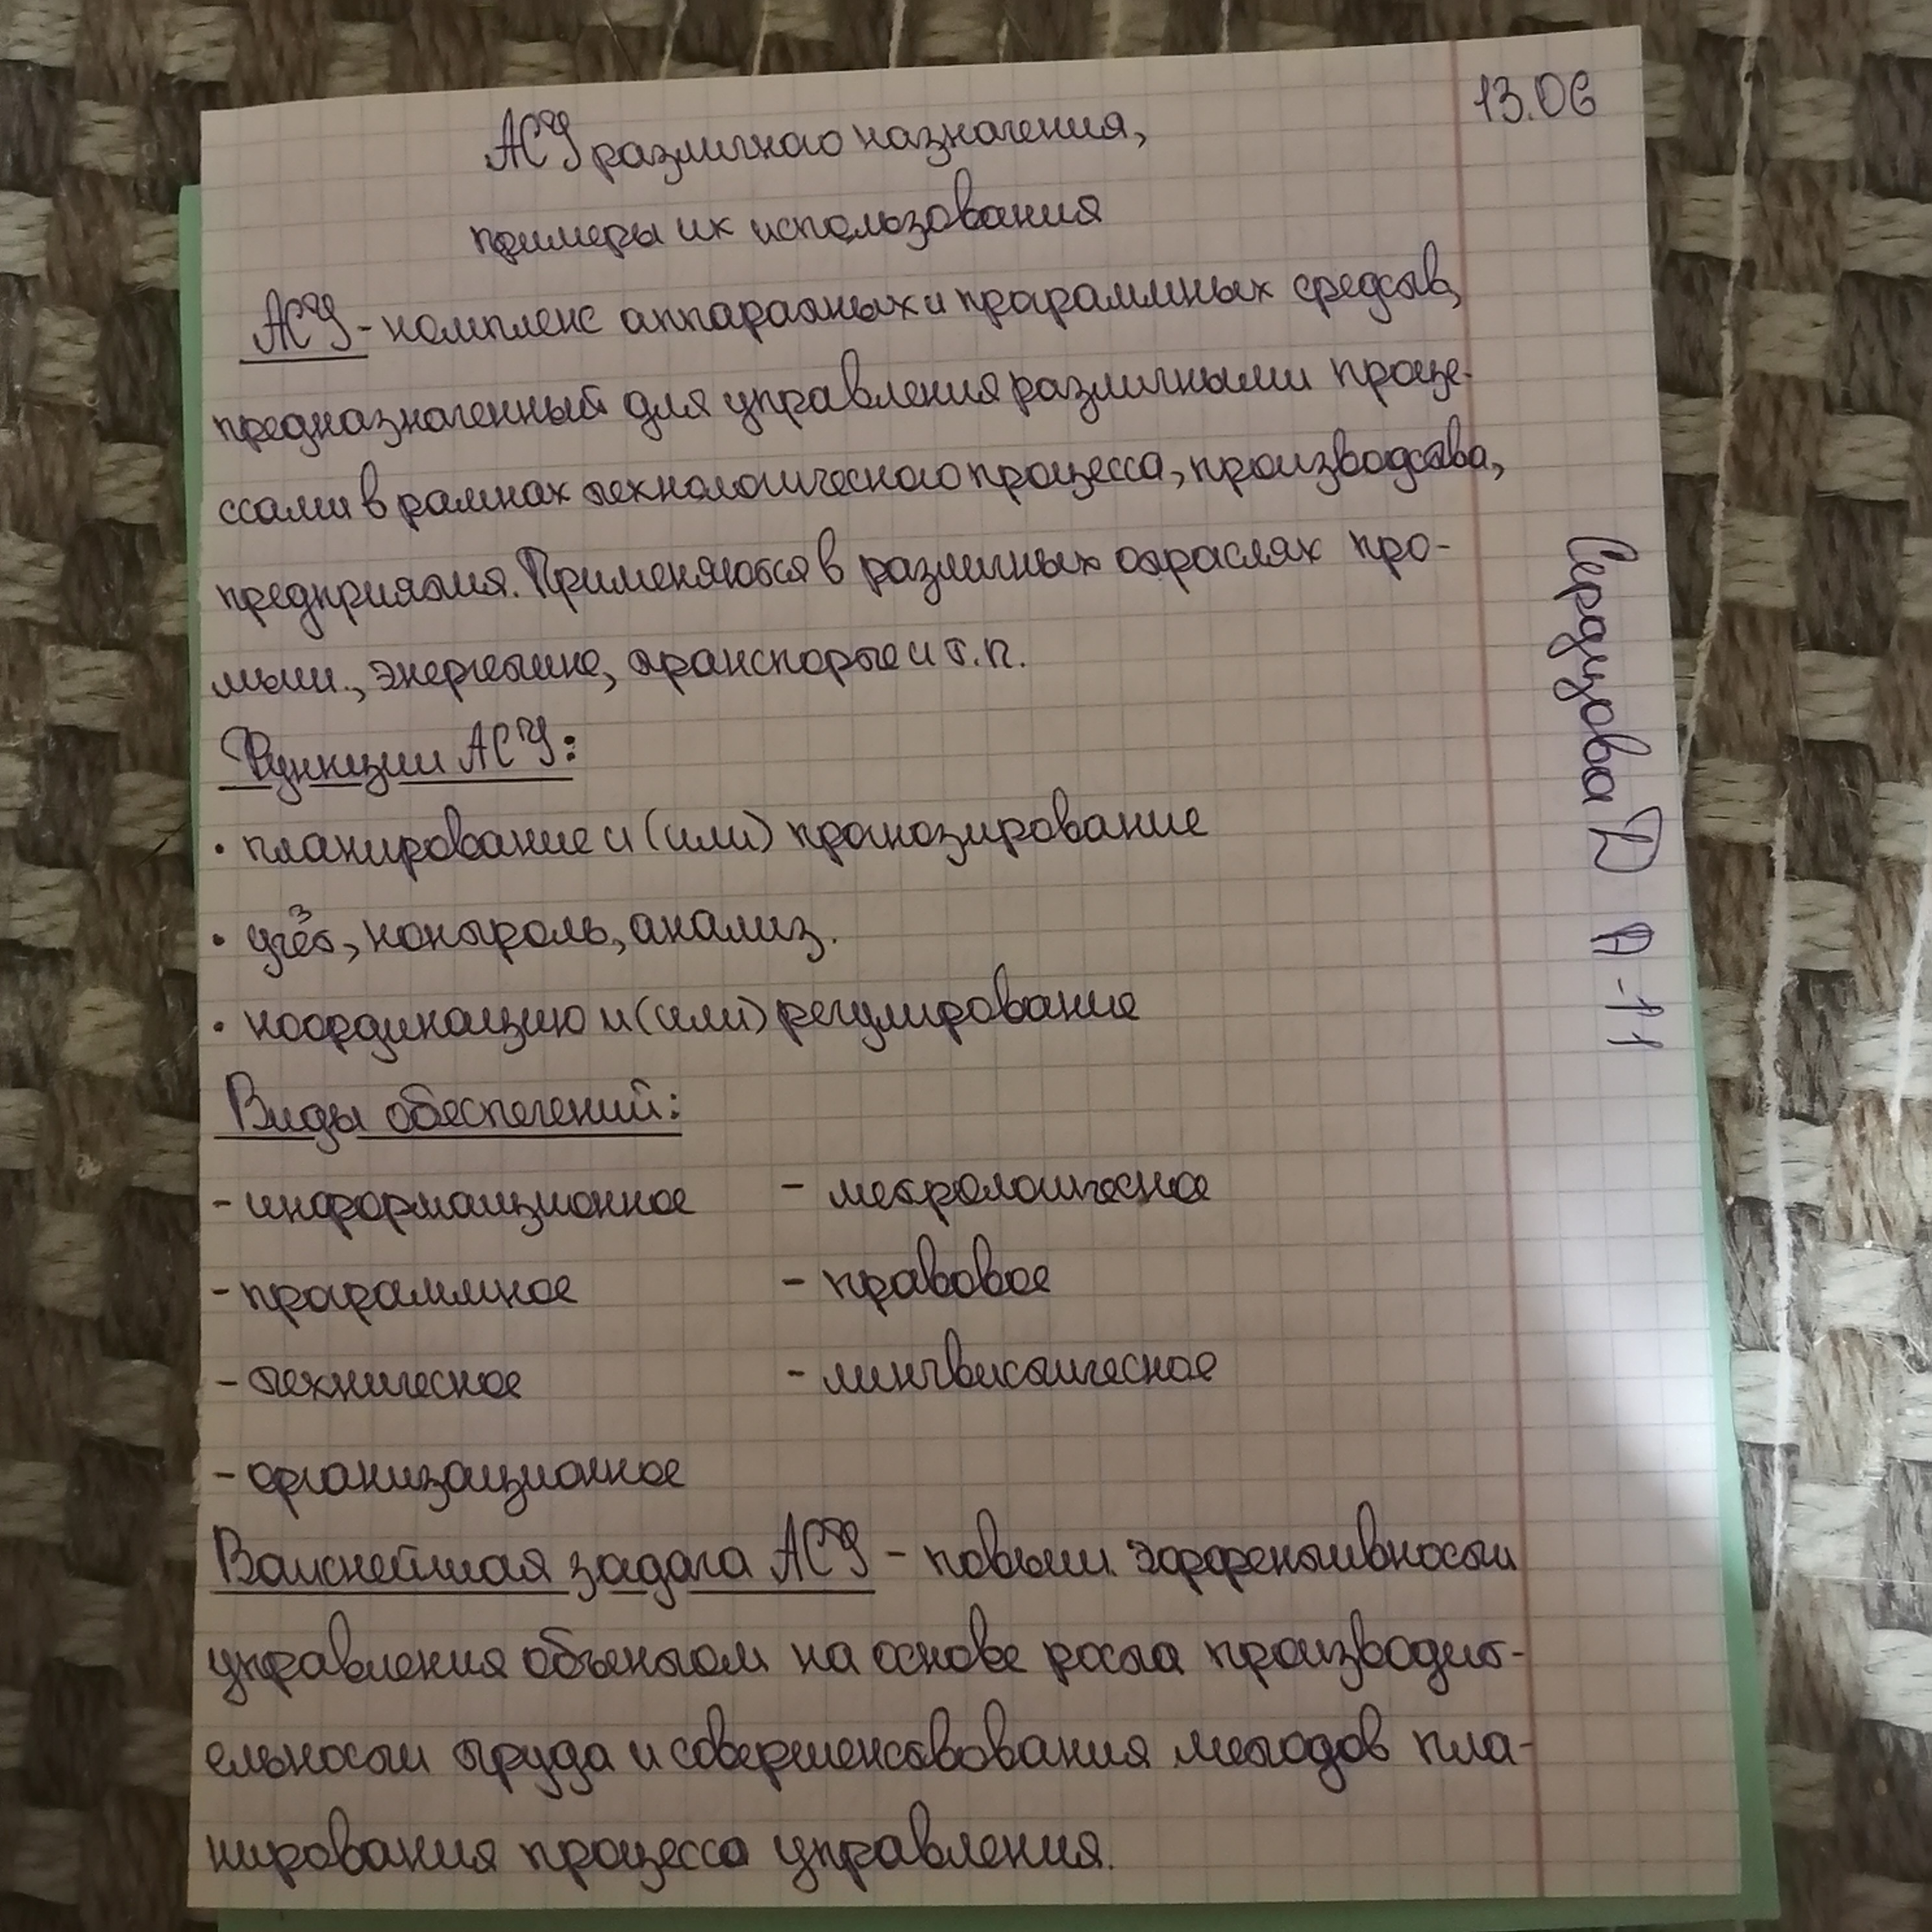 13.06
АСУ различного назначения,
примеры их использования
АСУ - комплекс аппаратных и программных средств,
предназначенный для управления различными проце-
ссами в рамках технологического процесса, производства,
предприятия. Применяются в различных отраслях про-
мыш., энергетике, транспорте и т.п.
Функции АСУ:
• планирование и (или) прогнозирование
• учёт, контроль, анализ.
• координацию и (или) регулирование
Виды обеспечений:
- информационное - метрологическое
- программное - правовое
- техническое - лингвистическое
- организационное
Важнейшая задача АСУ - повыш. эффективности
управления объектом на основе роста производит-
ельности труда и совершенствования методов пла-
нирования процесса управления.
Сердцова Д А-11